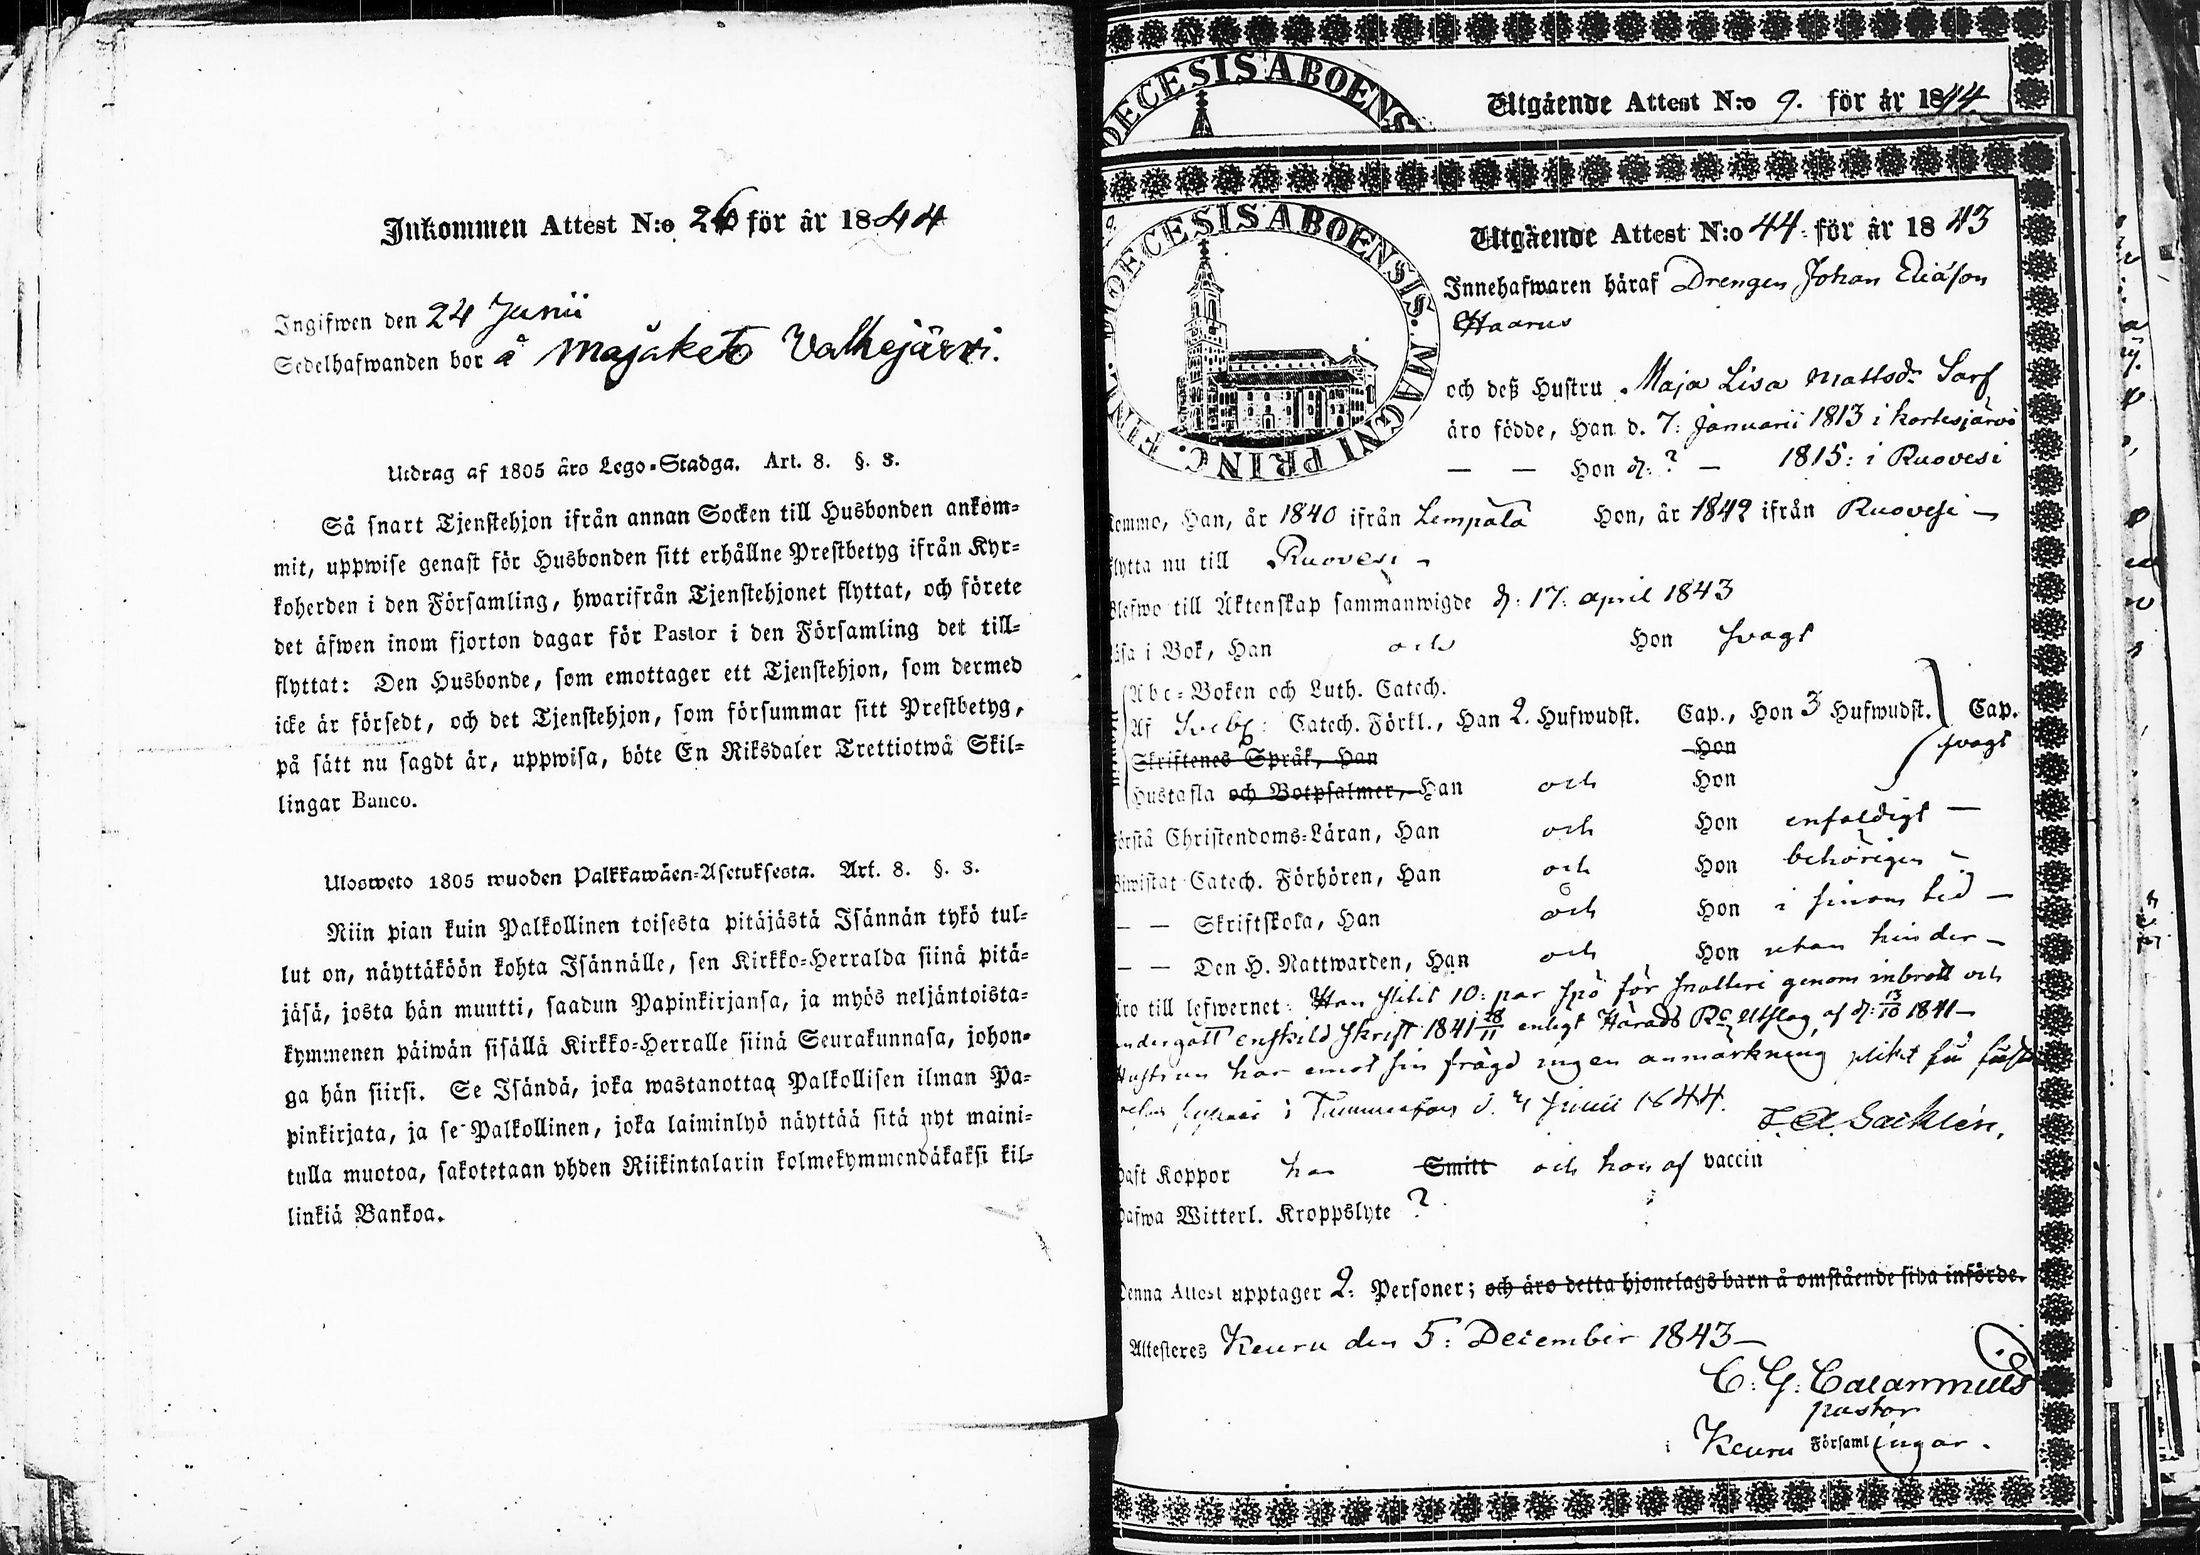 Inkommen Attest N:o 26 för år 1844
Ingifwen den 24 Junii
Sedelhafwanden bor å Majaketo Valkejärvi.
Utdrag af 1805 års Lego-Stadga. Art. 8. §. 3.
Så snart Tjenstehjon ifrån annan Socken till Husbonden ankom-
mit, uppwise genast för Husbonden sitt erhållne Prestbetyg ifrån Kyr-
koherden i den Församling, hwarifrån Tjenstehjonet flyttat, och förete
det äfwen inom fjorton dagar för Pastor i den Församling det till-
flyttat: Den Husbonde, som emottager ett Tjenstehjon, som dermed
icke är försedt, och det Tjenstehjon, som försummar sitt Prestbetyg,
på sätt nu sagdt är, uppwisa, böte En Riksdaler Trettiotwå Skil-
lingar Banco.
Ulosweto 1805 wuoden Palkkawäen-Asetuksesta. Art. 8. §. 3.
Niin pian kuin Palkollinen toisesta pitäjästä Isännän tykö tul-
lut on, näyttäköön kohta Isännälle, sen Kirkko-Herralda siinä pitä-
jäsä, josta hän muutti, saadun Papinkirjansa, ja myös neljäntoista-
kymmenen päiwän sisällä Kirkko-Herralle siinä Seurakunnasa, johon-
ga hän siirsi. Se Isändä, joka wastanottaa Palkollisen ilman Pa-
pinkirjata, ja se Palkollinen, joka laiminlyö näyttää sitä nyt maini-
tulla muotoa, sakotetaan yhden Riikintalarin kolmekymmendäkaksi kil-
linkiä Bankoa.
DIOECESIS ABOENS
Utgående Attest N:o 9. för år 1844
DIOECESIS ABOENSIS. MAGNI PRINC. FINL.
Utgående Attest N:o 44 för år 1843
Innehafwaren häraf Drengen Johan Eliasson
Haarus
och deß Hustru Maja Lisa Mattsdr Sarf
äro födde, Han d. 7: Januarii 1813 i Kortesjärvi
— — Hon d: ? — 1815: i Ruovesi
Kommo, Han, år 1840 ifrån Lempälä Hon, år 1842 ifrån Ruovesi —
Flytta nu till Ruovesi —
Blefwo till Äktenskap sammanwigde d: 17: april 1843
Läsa i Bok, Han och Hon svagt
Abc-Boken och Luth. Catech.
Af Svebel: Catech. Förkl., Han 2. Hufwudst. Cap., Hon 3 Hufwudst. Cap.
Skriftenes Språk, Han Hon svagt
Hustafla och Botpsalmer, Han och Hon
Förstå Christendoms-Läran, Han och Hon enfaldigt —
Biwistat Catech. Förhören, Han och Hon behörigen —
— — Skriftskola, Han och Hon i sinom tid —
— — Den H. Nattwarden, Han och Hon utan hinder —
Äro till lefwernet: Han slitit 10: par spö för snatteri genom inbrott och
undergått enskild skrift 1841 28/11 enligt Härads Rs Utslag af d: 13/10 1841 —
Hustrun har emot sin frägd ingen anmärkning
Junii 1844.
Haft Koppor han Smitt och hon af vaccin
Hafwa Witterl. Kroppslyte ?
Denna Attest upptager 2: Personer; och äro detta hjonelags barn å omstående sida införde.
Attesteres Keuru den 5: December 1843 —
C: G: Calamnius
pastor
i Keuru Församlingar.